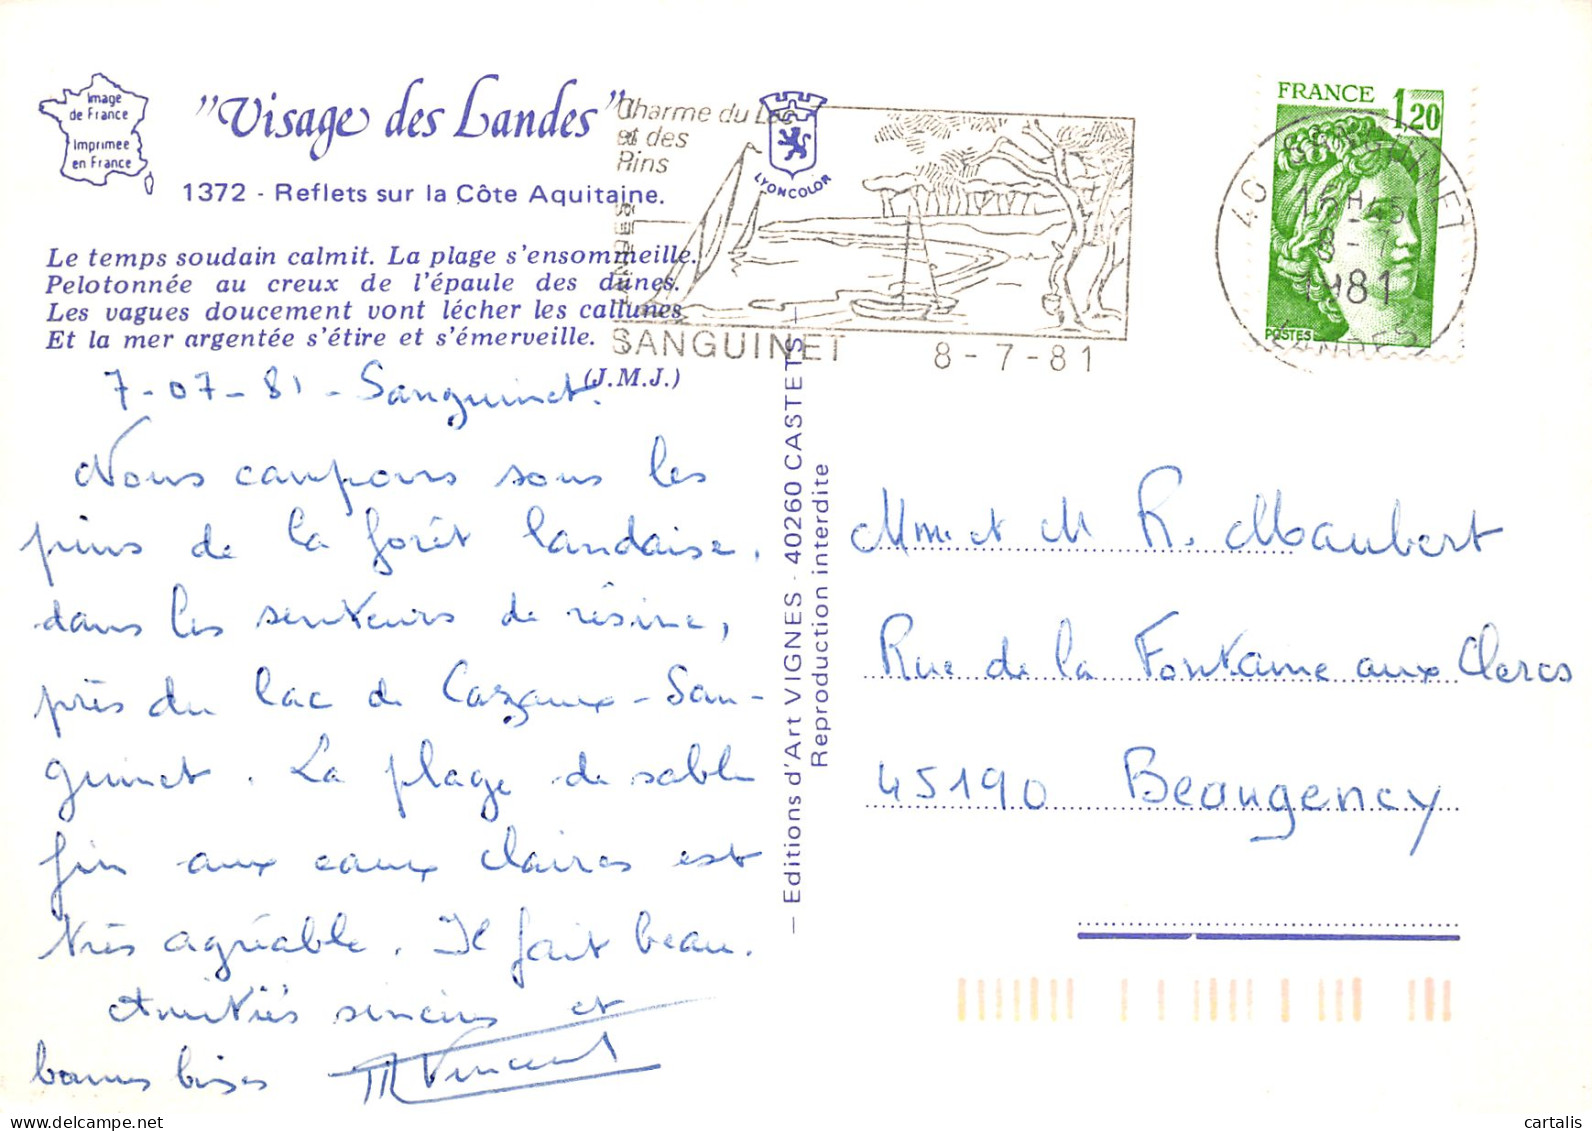 Image
de France
Imprimée
en France
"Visage des Landes"
1372 - Reflets sur la Côte Aquitaine.
Le temps soudain calmit. La plage s'ensommeille.
Pelotonnée au creux de l'épaule des dunes.
Les vagues doucement vont lécher les callunes
Et la mer argentée s'étire et s'émerveille.
(J.M.J.)
7-07-81 - Sanguinet.
Nous campons sous les
pins de la forêt landaise,
dans les senteurs de résine,
près du lac de Cazaux-San-
guinet. La plage de sable
fin aux eaux claires est
très agréable. Il fait beau.
Amitiés sincères et
bonnes bises
Vincent
LYONCOLOR
— Editions d'Art VIGNES - 40260 CASTETS —
Reproduction interdite
Charme du Lac
et des
Pins
LANDES
SANGUINET 8-7-81
FRANCE 1,20
POSTES
40 SANGUINET
16H45
8-7
1981
LANDES
Mme et M R. Maubert
Rue de la Fontaine aux Clercs
45190 Beaugency
cartalis
www.delcampe.net